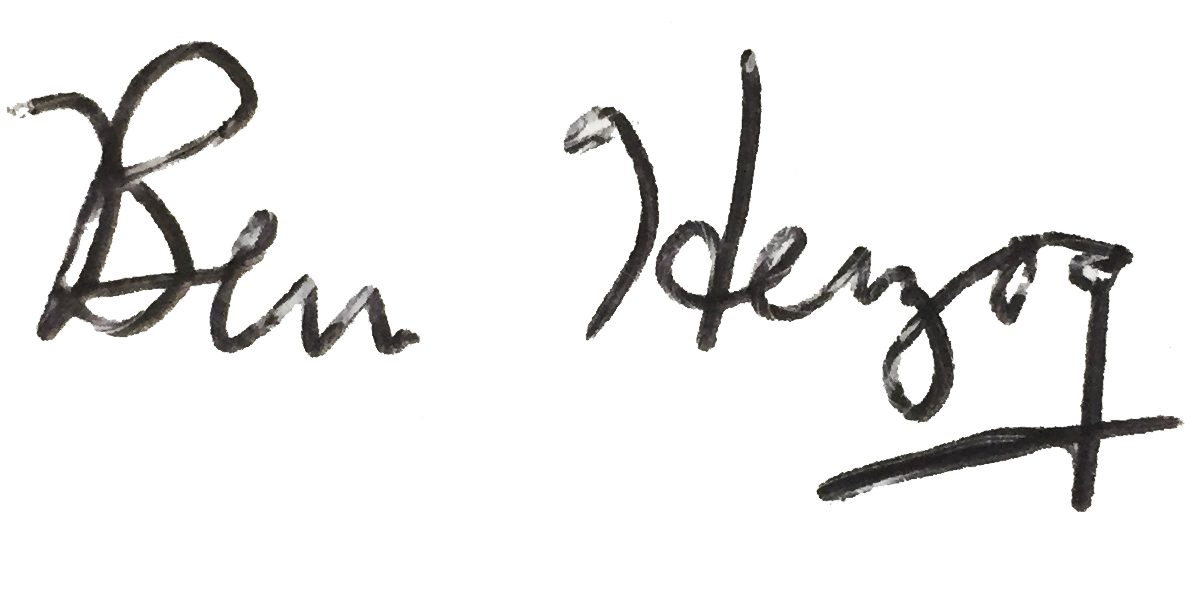 Ben Herzog